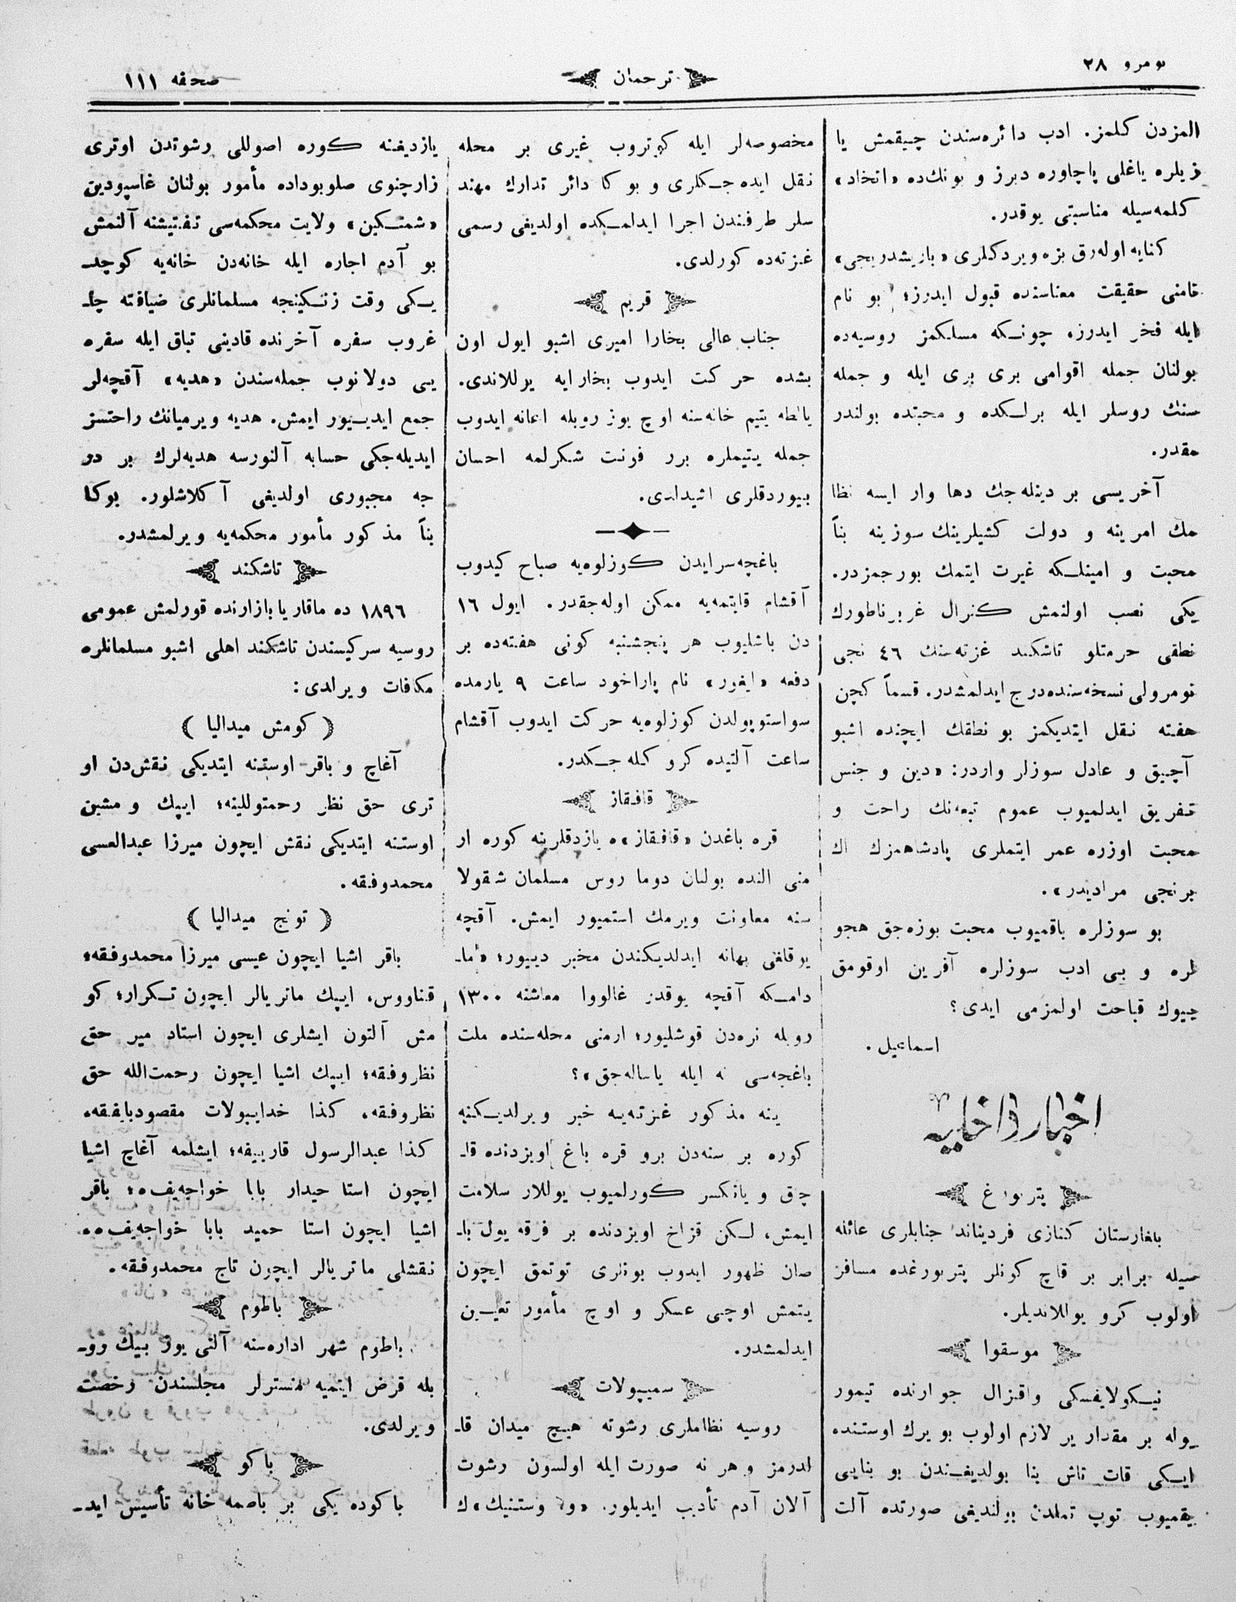 نومرو ٢٨
ترجمان
صحفه ١١١
المزدن كلمز. ادب دائره‌سندن چيقمش يا
زيلره ياغلى پاچاوره ديرز و بونك‌ده «اتخاد»
كلمه‌سيله مناسبتى يوقدر.
كنايه اوله‌رق بزه ويردكلرى «باريشديريجى»
نامنى حقيقت معناسنده قبول ايدرز؛ بو نام
ايله فخر ايدرز، چونكه مسلكمز روسيه‌ده
بولنان جمله اقوامى برى برى ايله و جمله
سنك روسلر ايله برلكده و محبتده بولندر
مقدر.
آخريسى بر دينله‌جك دها وار ايسه نظا
مك امرينه و دولت كشيلرينك سوزينه بناً
محبت و امينلكه غيرت ايتمك بورجمزدر.
يكى نصب اولنمش كنرال غربرناطورك
نطقى حرمتلو تاشكند غزته‌سنك ٤٦ نجى
نومرولى نسخه‌سنده درج ايدلمشدر. قسماً كچن
هفته نقل ايتديكمز بو نطقك ايچنده اشبو
آچيق و عادل سوزلر واردر: «دين و جنس
تفريق ايدلميوب عموم تبعه‌نك راحت و
محبت اوزره عمر ايتملرى پادشاهمزك اك
برنجى مراديدر».
بو سوزلره باقميوب محبت بوزه‌جق هجو
لره و بى ادب سوزلره آفرين اوقومق
بيوك قباحت اولمزمى ايدى؟
اسماعيل.
اخبار داخليه
پتربورغ
باغارستان كنازى فرديناند جنابلرى عائله
سيله برابر بر قاچ كونلر پتربورغده مسافر
اولوب كرو يوللانديلر.
موسقوا
نيكولايفسكى واقزال جوارنده تيمور
يوله بر مقدار ير لازم اولوب بو يرك اوستنده
ايكى قات تاش بنا بولديغندن بو بنايى
يقميوب توپ تملدن بولنديغى صورتده آلت
مخصوصه‌لر ايله كوتروب غيرى بر محله
نقل ايده جكلرى و بوكا دائر تدارك مهند
سلر طرفندن اجرا ايدلمكده اولديغى رسمى
غزته‌ده كورلدى.
قريم
جناب عالى بخارا اميرى اشبو ايول اون
بشده حركت ايدوب بخارايه يوللاندى.
يالطه يتيم خانه‌سنه اوچ يوز روبله اعانه ايدوب
جمله يتيملره برر فونت شكرلمه احسان
بيوردقلرى اشيدلدى.
باغچه‌سرايدن كوزلوه‌يه صباح كيدوب
آقشام قايتمه‌يه ممكن اوله‌جقدر. ايول ١٦
دن باشليوب هر پنجشنبه كونى هفته‌ده بر
دفعه «ايغور» نام پاراخود ساعت ٩ يارمده
سواستوپولدن كوزلوه‌يه حركت ايدوب آقشام
ساعت آلتيده كرو كله جكدر.
قافقاز
قره باغدن «قافقاز»ه يازدقلرينه كوره ار
منى النده بولنان دوما روس مسلمان شقولا
سنه معاونت ويرمك استميور ايمش. آقچه
يوقلغى بهانه ايدلديكندن مخبر دييور؛ «ما۔
دامكه آقچه يوقدر غالووا معاشنه ١٣٠٠
روبله نره‌دن قوشليور؛ ارمنى محله‌سنده ملت
باغجه‌سى نه ايله ياساله‌جق»؟
ينه مذكور غزته‌يه خبر ويرلديكنه
كوره بر سنه‌دن برو قره باغ اويزدنده قا۔
چق و يانكسر كورلميوب يوللار سلامت
ايمش، لكن قزاخ اويزدنده بر فرقه يول با۔
صان ظهور ايدوب بونلرى توتمق ايچون
يتمش اوچى عسكر و اوچ مأمور تعيين
ايدلمشدر.
سميپولات
روسيه نظاملرى رشوته هيچ ميدان قا۔
لدرمز و هر نه صورت ايله اولسون رشوت
آلان آدم تأديب ايديلور. «وا وستنيك»ك
يازديغنه كوره اصوللى رشوتدن اوترى
زارچنوى صلوبوداده مأمور بولنان غاسپودين
«شمتكين» ولايت محكمه‌سى تفتيشنه آلنمش
بو آدم اجاره ايله خانه‌دن خانه‌يه كوچد۔
يكى وقت زنكينجه مسلمانلرى ضيافته چا۔
غروب سفره آخرنده قادينى تباق ايله سفره
يى دولانوب جمله‌سندن «هديه» آقچه‌لر
جمع ايديور ايمش. هديه ويرميانك راحتسز
ايديله‌جكى حسابه آلنورسه هديه‌لرك بر در
جه مجبورى اولديغى آكلاشلور. بوكا
بناً مذكور مأمور محكمه‌يه ويرلمشدر.
تاشكند
١٨٩٦ ده ماقاريا بازارنده قورلمش عمومى
روسيه سركيسندن تاشكند اهلى اشبو مسلمانلره
مكافات ويرلدى:
(كومش ميداليا)
آغاچ و باقر اوستنه ايتديكى نقش‌دن او
ترى حق نظر رحمتوللينه؛ ايپك و مشين
اوستنه ايتديكى نقش ايچون ميرزا عبدالعسى
محمدوفقه.
(تونج ميداليا)
باقر اشيا ايچون عيسى ميرزا محمدوفقه؛
قناووس، ايپك ماتريالر ايچون تكرار؛ كو
مش آلتون ايشلرى ايچون استاد مير حق
نظروفقه؛ ايپك اشيا ايچون رحمت‌الله حق
نظروفقه، كذا خدايبولات مقصودبايفقه،
كذا عبدالرسول قاريفه؛ ايشلمه آغاچ اشيا
ايچون استا حيدار بابا خواجه‌يف‌ه؛ باقر
اشيا ايچون استا حميد بابا خواجه‌يف‌ه
نقشلى ماتريالر ايچون تاج محمدوفقه.
باطوم
باطوم شهر اداره‌سنه آلتى يوز بيك رو۔
بله قرض ايتميه منسترلر مجلسندن رخصت
ويرلدى.
باكو
باكوده يكى بر باصمه خانه تأسيس ايد۔